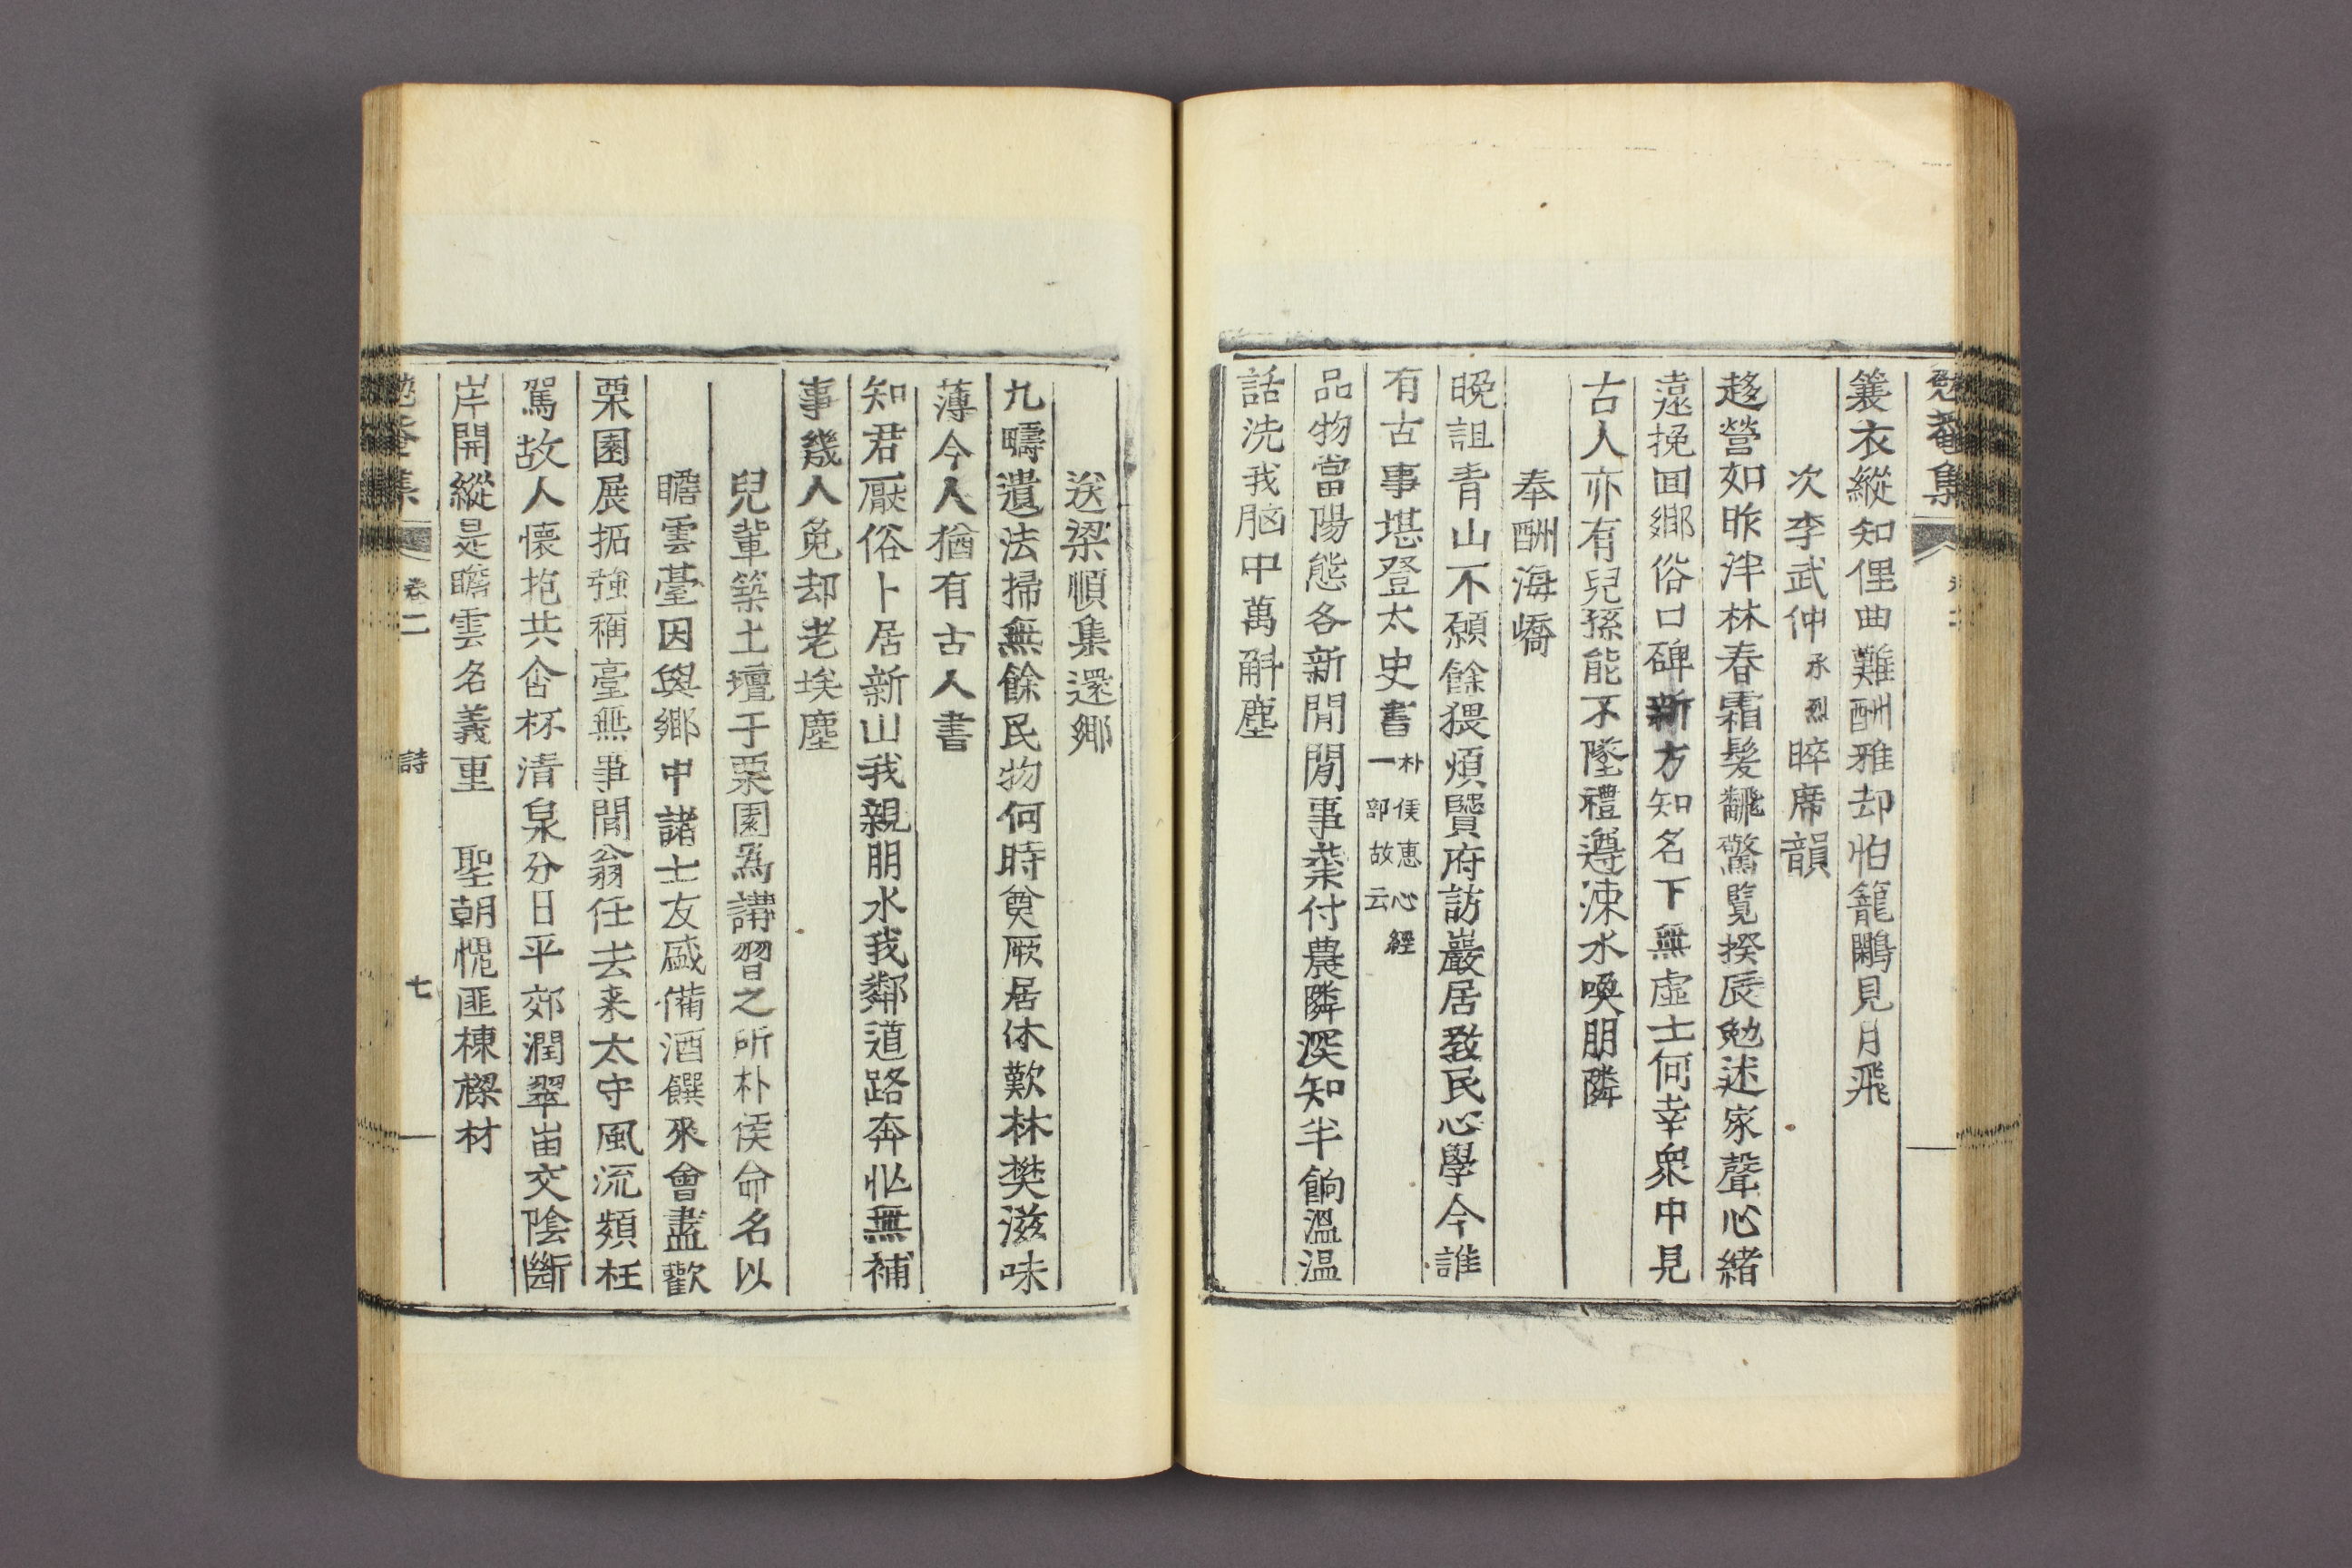 勉菴集
蓑衣縱知俚曲難酬雅却怕籠鷴見月飛
次李武仲承烈晬席韻
趍營如昨泮林春霜髮飜驚覽揆辰勉述家聲心緖
遠挽回鄕俗口碑新方知名下無虛士何幸衆中見
古人亦有兒孫能不墜禮遵涑水喚朋隣
奉酬海嶠
晩詛靑山不願餘猥煩賢府訪巖居敎民心學今誰
有古事堪登太史書朴侯惠心經一部故云
品物當陽態各新閒閒事業付農隣深知半餉溫溫
話洗我胸中萬斛塵
送梁順集還鄕
九疇遺法掃無餘民物何時奠厥居休歎林樊滋味
薄今人猶有古人書
知君厭俗卜居新山我親朋水我鄰道路奔忙無補
事幾人免却老埃塵
兒輩築土壇于栗園爲講習之所朴侯命名以
瞻雲臺因與鄕中諸士友盛備酒饌來會盡歡
栗園展拓強稱臺無事閒翁任去来太守風流頻枉
駕故人懷抱共含杯清泉分日平郊潤翠崮交陰斷
岸開縱是瞻雲名義重 聖朝愧匪棟樑材
勉菴集 卷二 詩 七